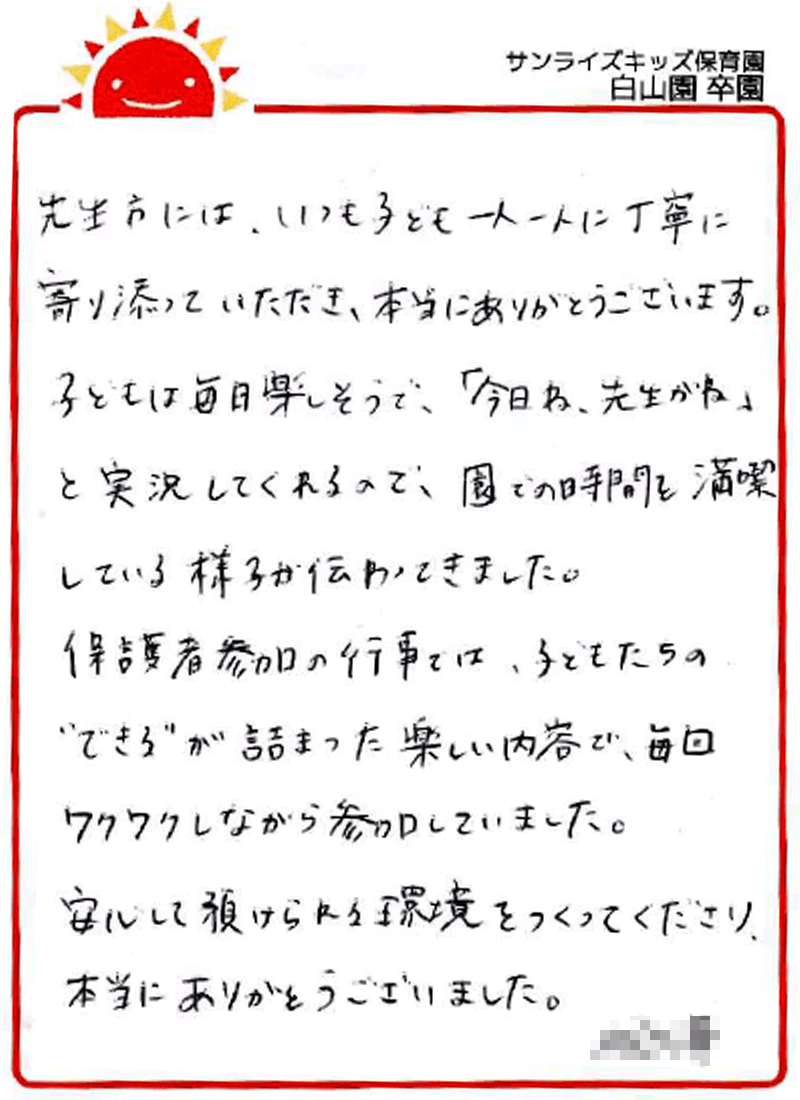 サンライズキッズ保育園
白山園 卒園
先生方には、いつも子ども一人一人に丁寧に
寄り添っていただき、本当にありがとうございます。
子どもは毎日楽しそうで、「今日ね、先生がね」
と実況してくれるので、園での時間を満喫
している様子が伝わってきました。
保護者参加の行事では、子どもたちの
"できる"が詰まった楽しい内容で、毎回
ワクワクしながら参加していました。
安心して預けられる環境をつくってくださり、
本当にありがとうございました。